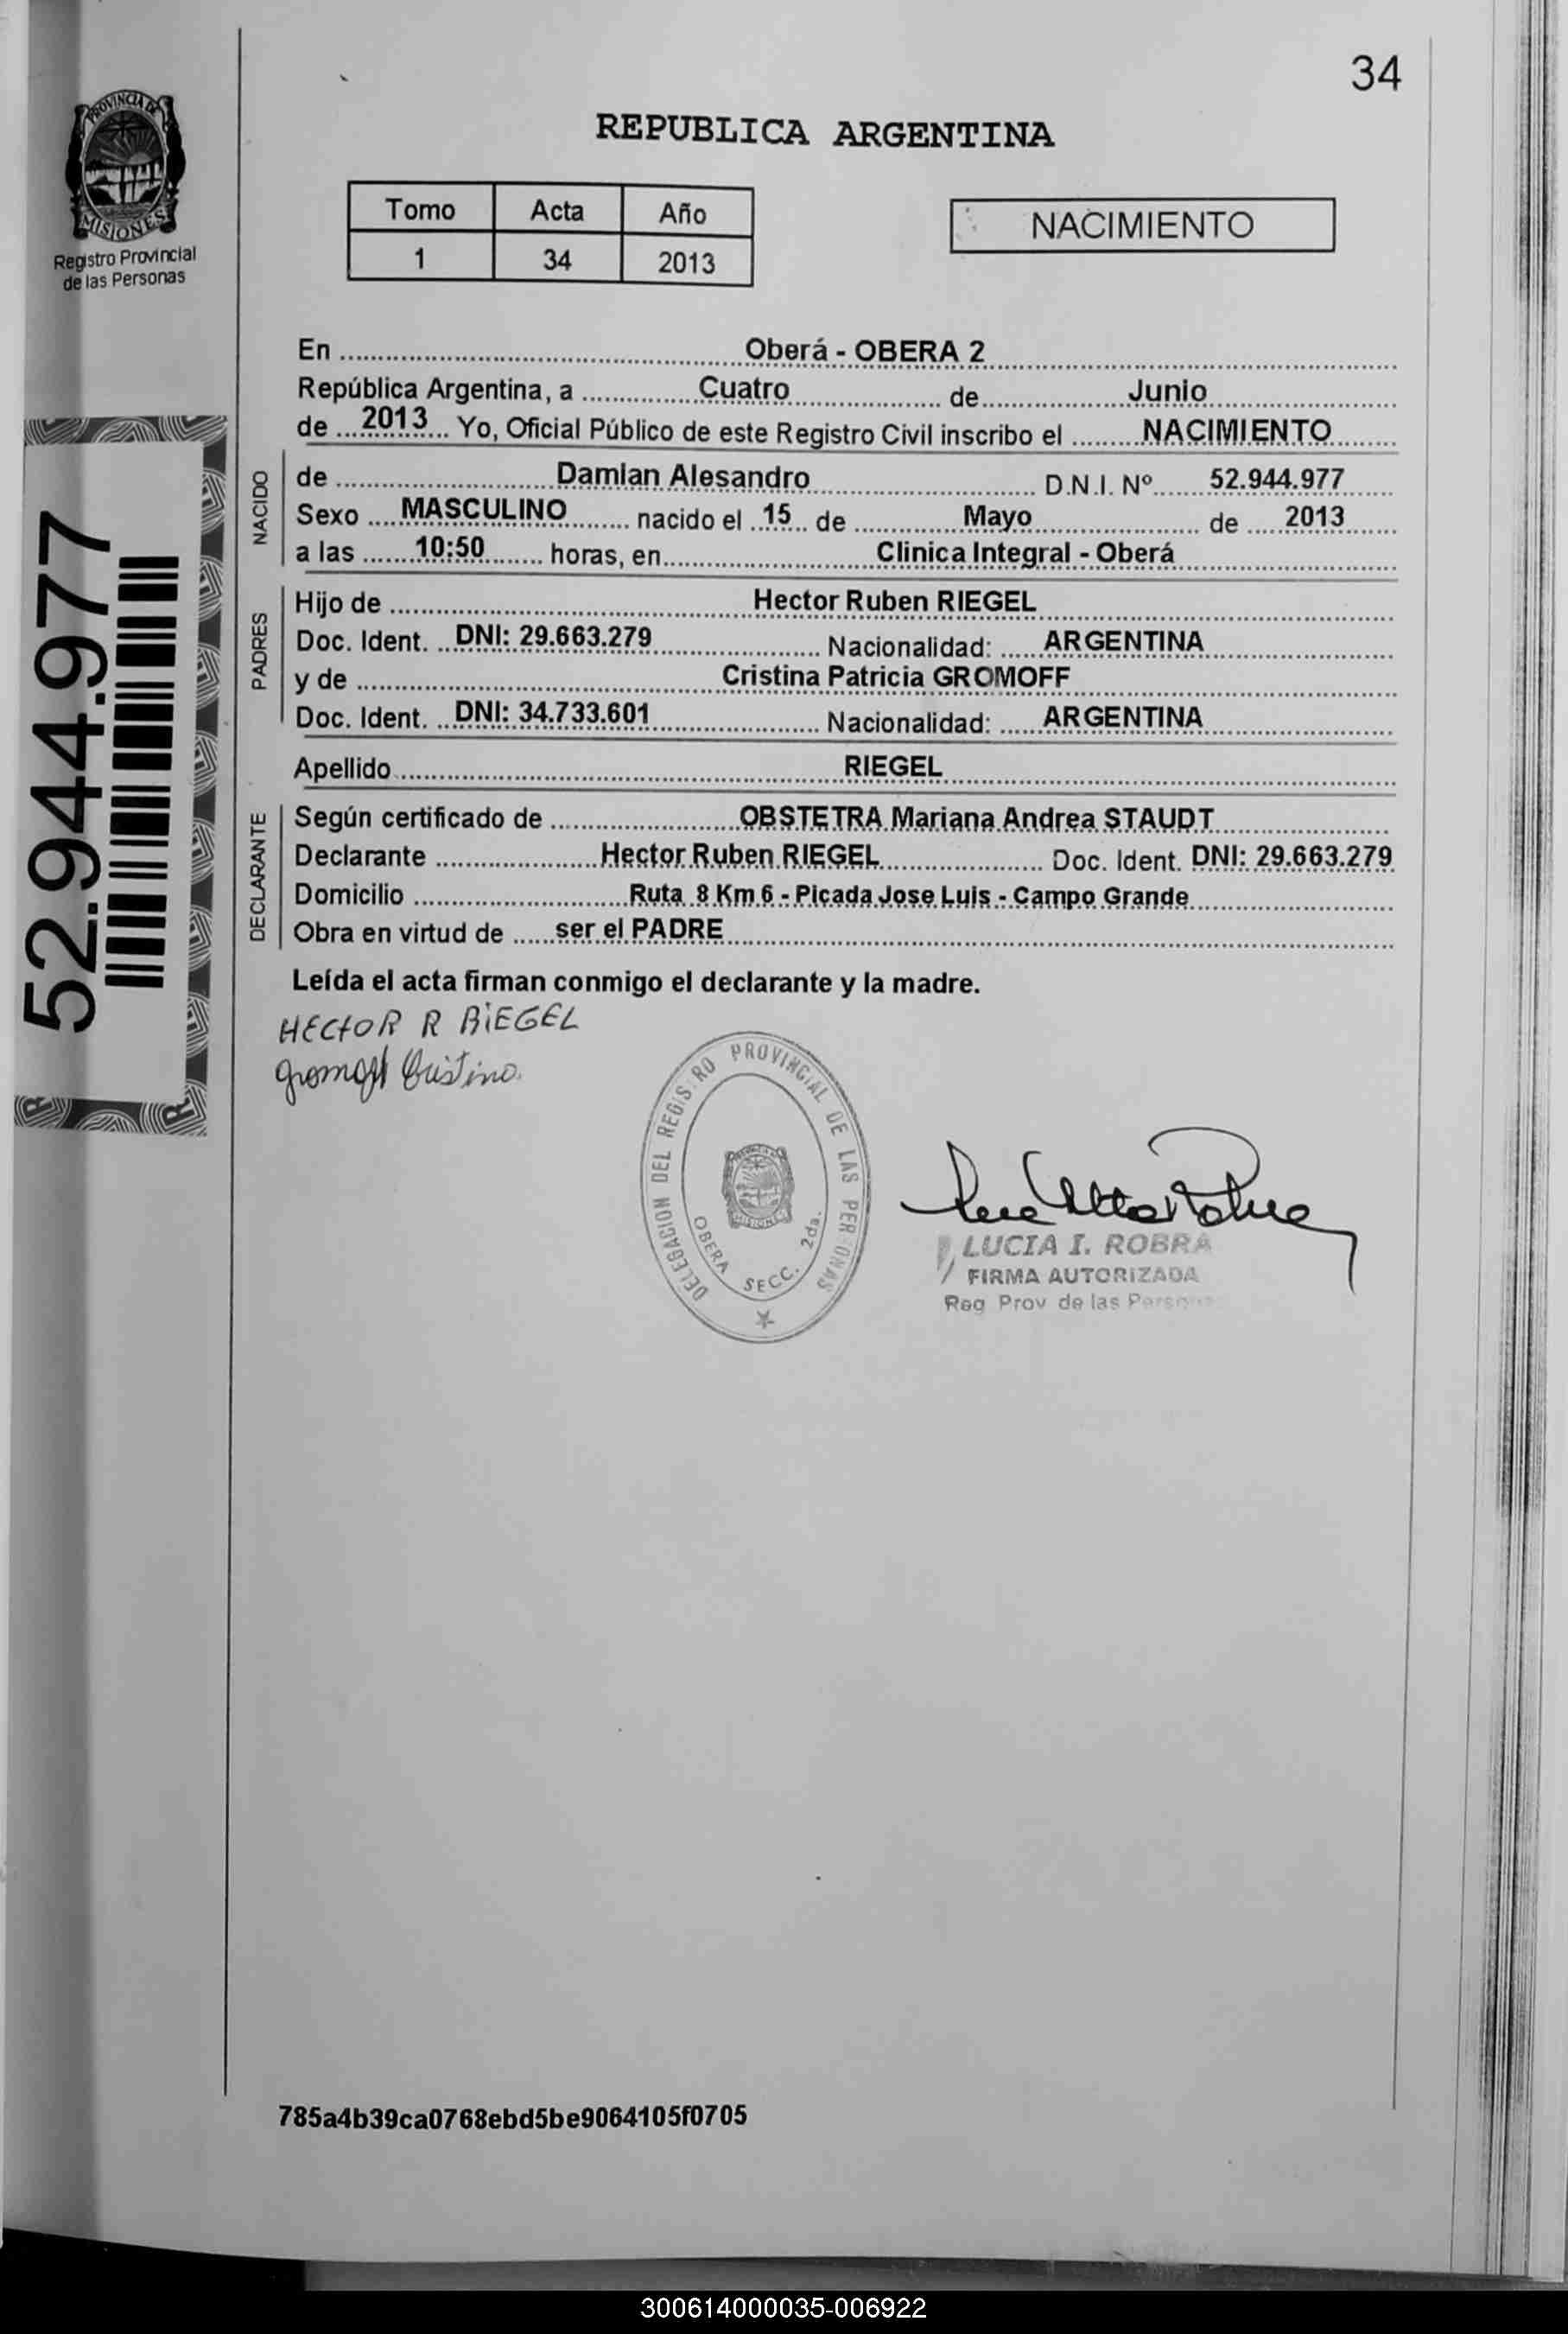 34
PROVINCIA DE
MISIONES
Registro Provincial
de las Personas
REPUBLICA ARGENTINA
Tomo Acta Año
1 34 2013
NACIMIENTO
En Oberá - OBERA 2
República Argentina, a Cuatro de Junio
de 2013 Yo, Oficial Público de este Registro Civil inscribo el NACIMIENTO
NACIDO
de Damian Alesandro D.N.I. Nº 52.944.977
Sexo MASCULINO nacido el 15 de Mayo de 2013
a las 10:50 horas, en Clinica Integral - Oberá
PADRES
Hijo de Hector Ruben RIEGEL
Doc. Ident. DNI: 29.663.279 Nacionalidad: ARGENTINA
y de Cristina Patricia GROMOFF
Doc. Ident. DNI: 34.733.601 Nacionalidad: ARGENTINA
Apellido RIEGEL
DECLARANTE
Según certificado de OBSTETRA Mariana Andrea STAUDT
Declarante Hector Ruben RIEGEL Doc. Ident. DNI: 29.663.279
Domicilio Ruta 8 Km 6 - Picada Jose Luis - Campo Grande
Obra en virtud de ser el PADRE
Leída el acta firman conmigo el declarante y la madre.
HECtOR R RiEGEL
Gromoff Cristina
52.944.977
DELEGACION DEL REGISTRO PROVINCIAL DE LAS PERSONAS
OBERA SECC. 2da.
LUCIA I. ROBRA
FIRMA AUTORIZADA
Reg Prov de las Personas
785a4b39ca0768ebd5be9064105f0705
300614000035-006922